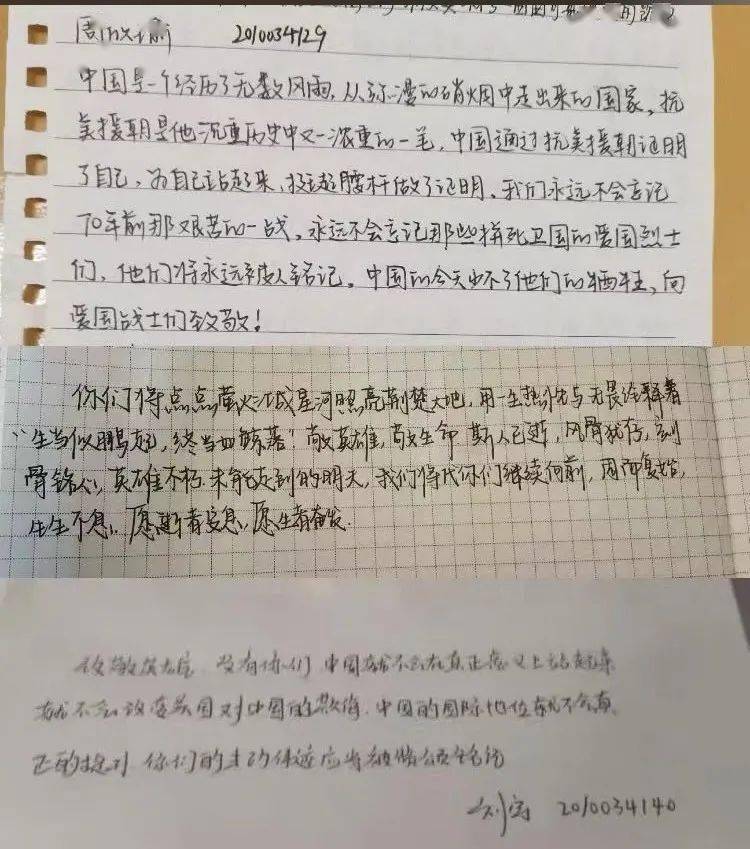 2010034129
中国是一个经历了无数风雨，从弥漫的硝烟中走出来的国家，抗
美援朝是他沉重历史中又一浓重的一笔，中国通过抗美援朝证明
了自己，为自己站起来，挺起腰杆做了证明。我们永远不会忘记
70年前那艰苦的一战，永远不会忘记那些拼死卫国的爱国烈士
们，他们将永远被人铭记。中国的今天少不了他们的牺牲，向
爱国战士们致敬！
你们将点点萤火汇成星河照亮荆楚大地，用一生热忱与无畏诠释着
“生当似鹏起，终当如鲸落”。敬英雄，敬生命 斯人已逝，风骨犹存，刻
骨铭心，英雄不朽。未能走到的明天，我们将代你们继续向前，周而复始，
生生不息。愿逝者安息，愿生者奋发.
致敬英雄 没有你们 中国就不会在真正意义上站起来
就不会改变美国对中国的 中国的国际地位就不会真
正的提升 你们的丰功伟迹应当被
刘 2010034140